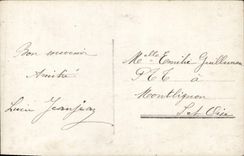 Bon souvenir
Amitié
Jeanjean
Melle Emilie Guillemin
P T T à
Montlignon
S. et Oise